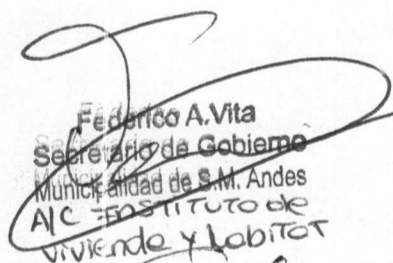 Federico A. Vita
Secretario de Gobierno
Municipalidad de S.M. Andes
A/C INSTITUTO de
Vivienda y HabiTaT